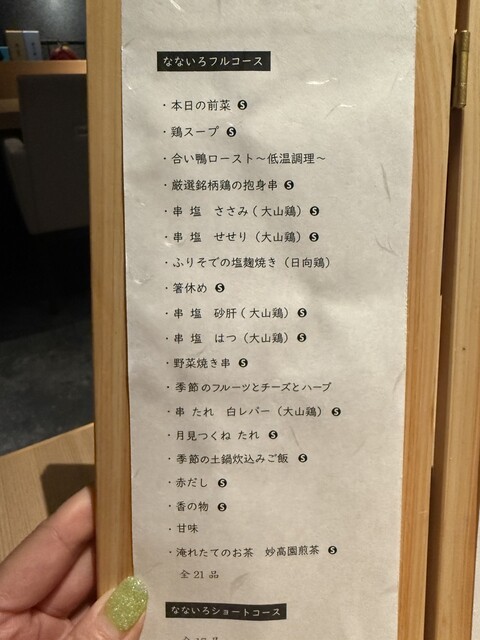 なないろフルコース
・本日の前菜 S
・鶏スープ S
・合い鴨ロースト～低温調理～
・厳選銘柄鶏の抱身串 S
・串 塩　ささみ（大山鶏）S
・串 塩　せせり（大山鶏）S
・ふりそでの塩麹焼き（日向鶏）
・箸休め S
・串 塩　砂肝（大山鶏）S
・串 塩　はつ（大山鶏）S
・野菜焼き串 S
・季節のフルーツとチーズとハーブ
・串 たれ　白レバー（大山鶏）S
・月見つくね たれ S
・季節の土鍋炊込みご飯 S
・赤だし S
・香の物 S
・甘味
・淹れたてのお茶　妙高園煎茶 S
全 21 品
なないろショートコース